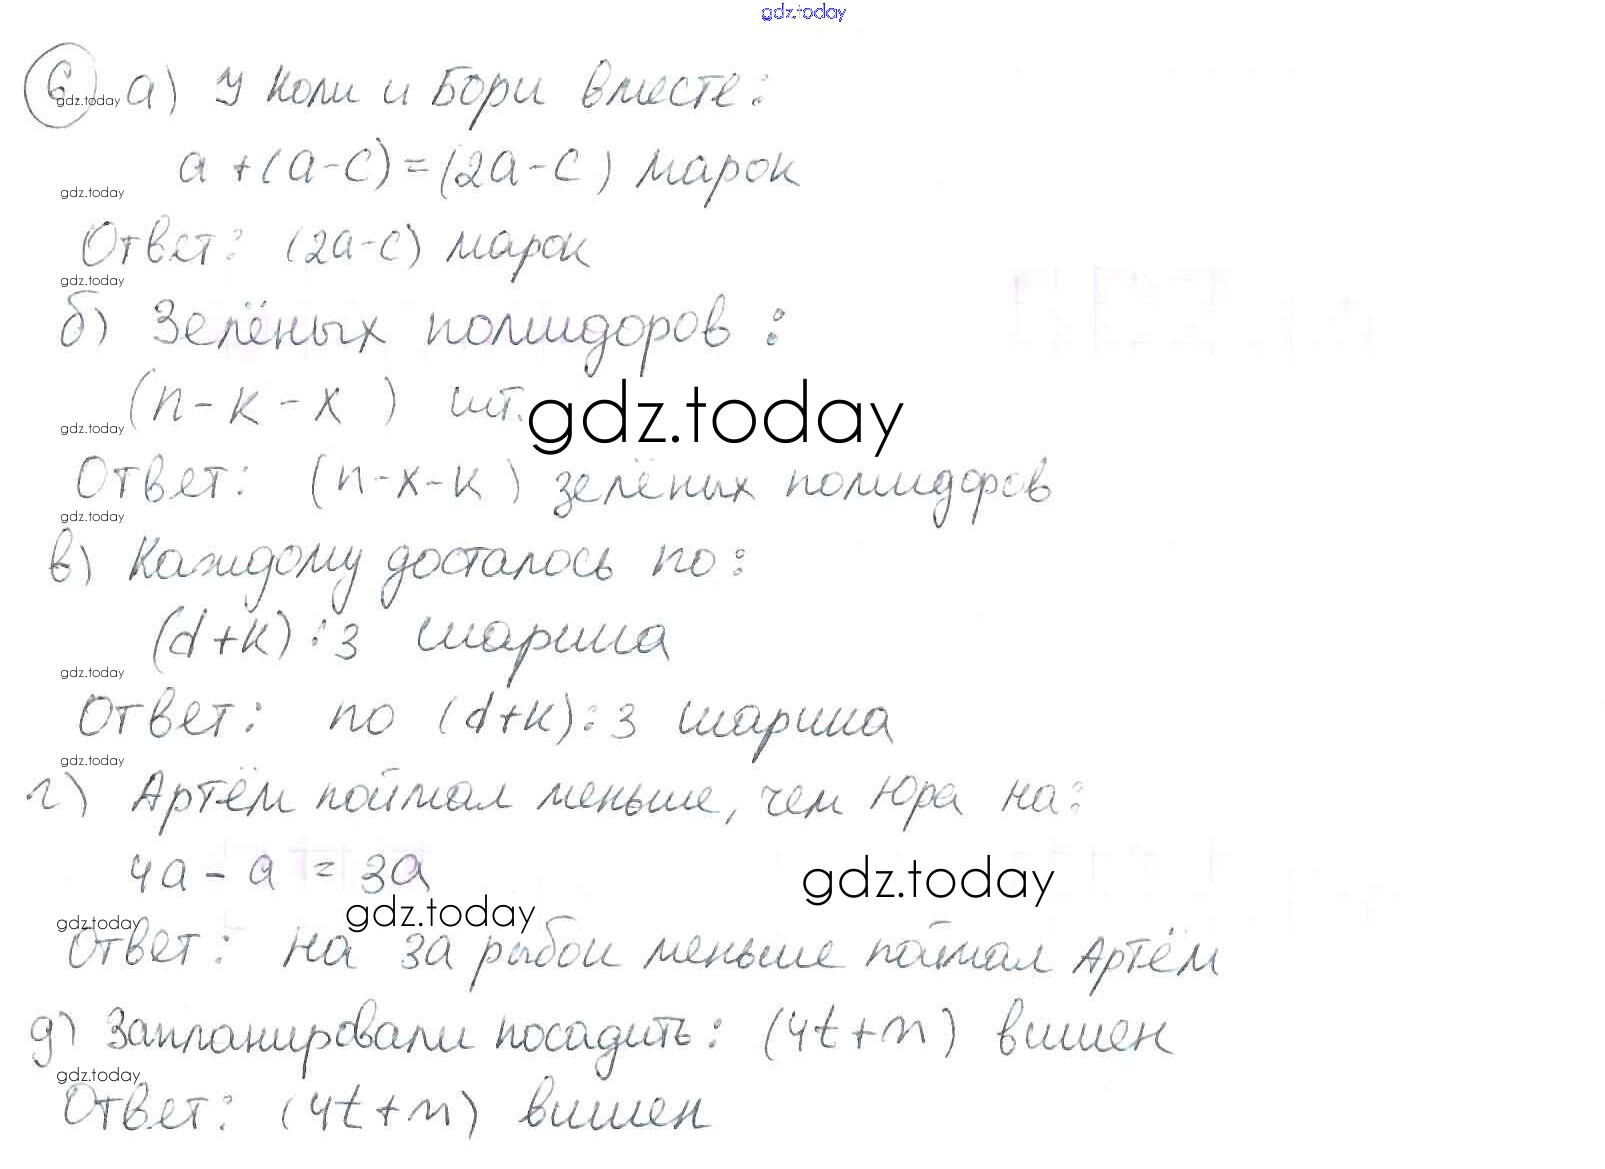 gdz.today
6 а) У Коли и Бори вместе:
gdz.today
a + (a - c) = (2a - c) марок
gdz.today
Ответ: (2a - c) марок
gdz.today
б) Зелёных помидоров:
(n - k - x) шт.
gdz.today
gdz.today
Ответ: (n - x - k) зелёных помидоров
gdz.today
в) Каждому досталось по:
(d + k) : 3 шарика
gdz.today
Ответ: по (d + k) : 3 шарика
gdz.today
г) Артём поймал меньше, чем Юра на:
4a - a = 3a
gdz.today
gdz.today
gdz.today
Ответ: на 3a рыбок меньше поймал Артём
д) Запланировали посадить: (4t + n) вишен
gdz.today
Ответ: (4t + n) вишен